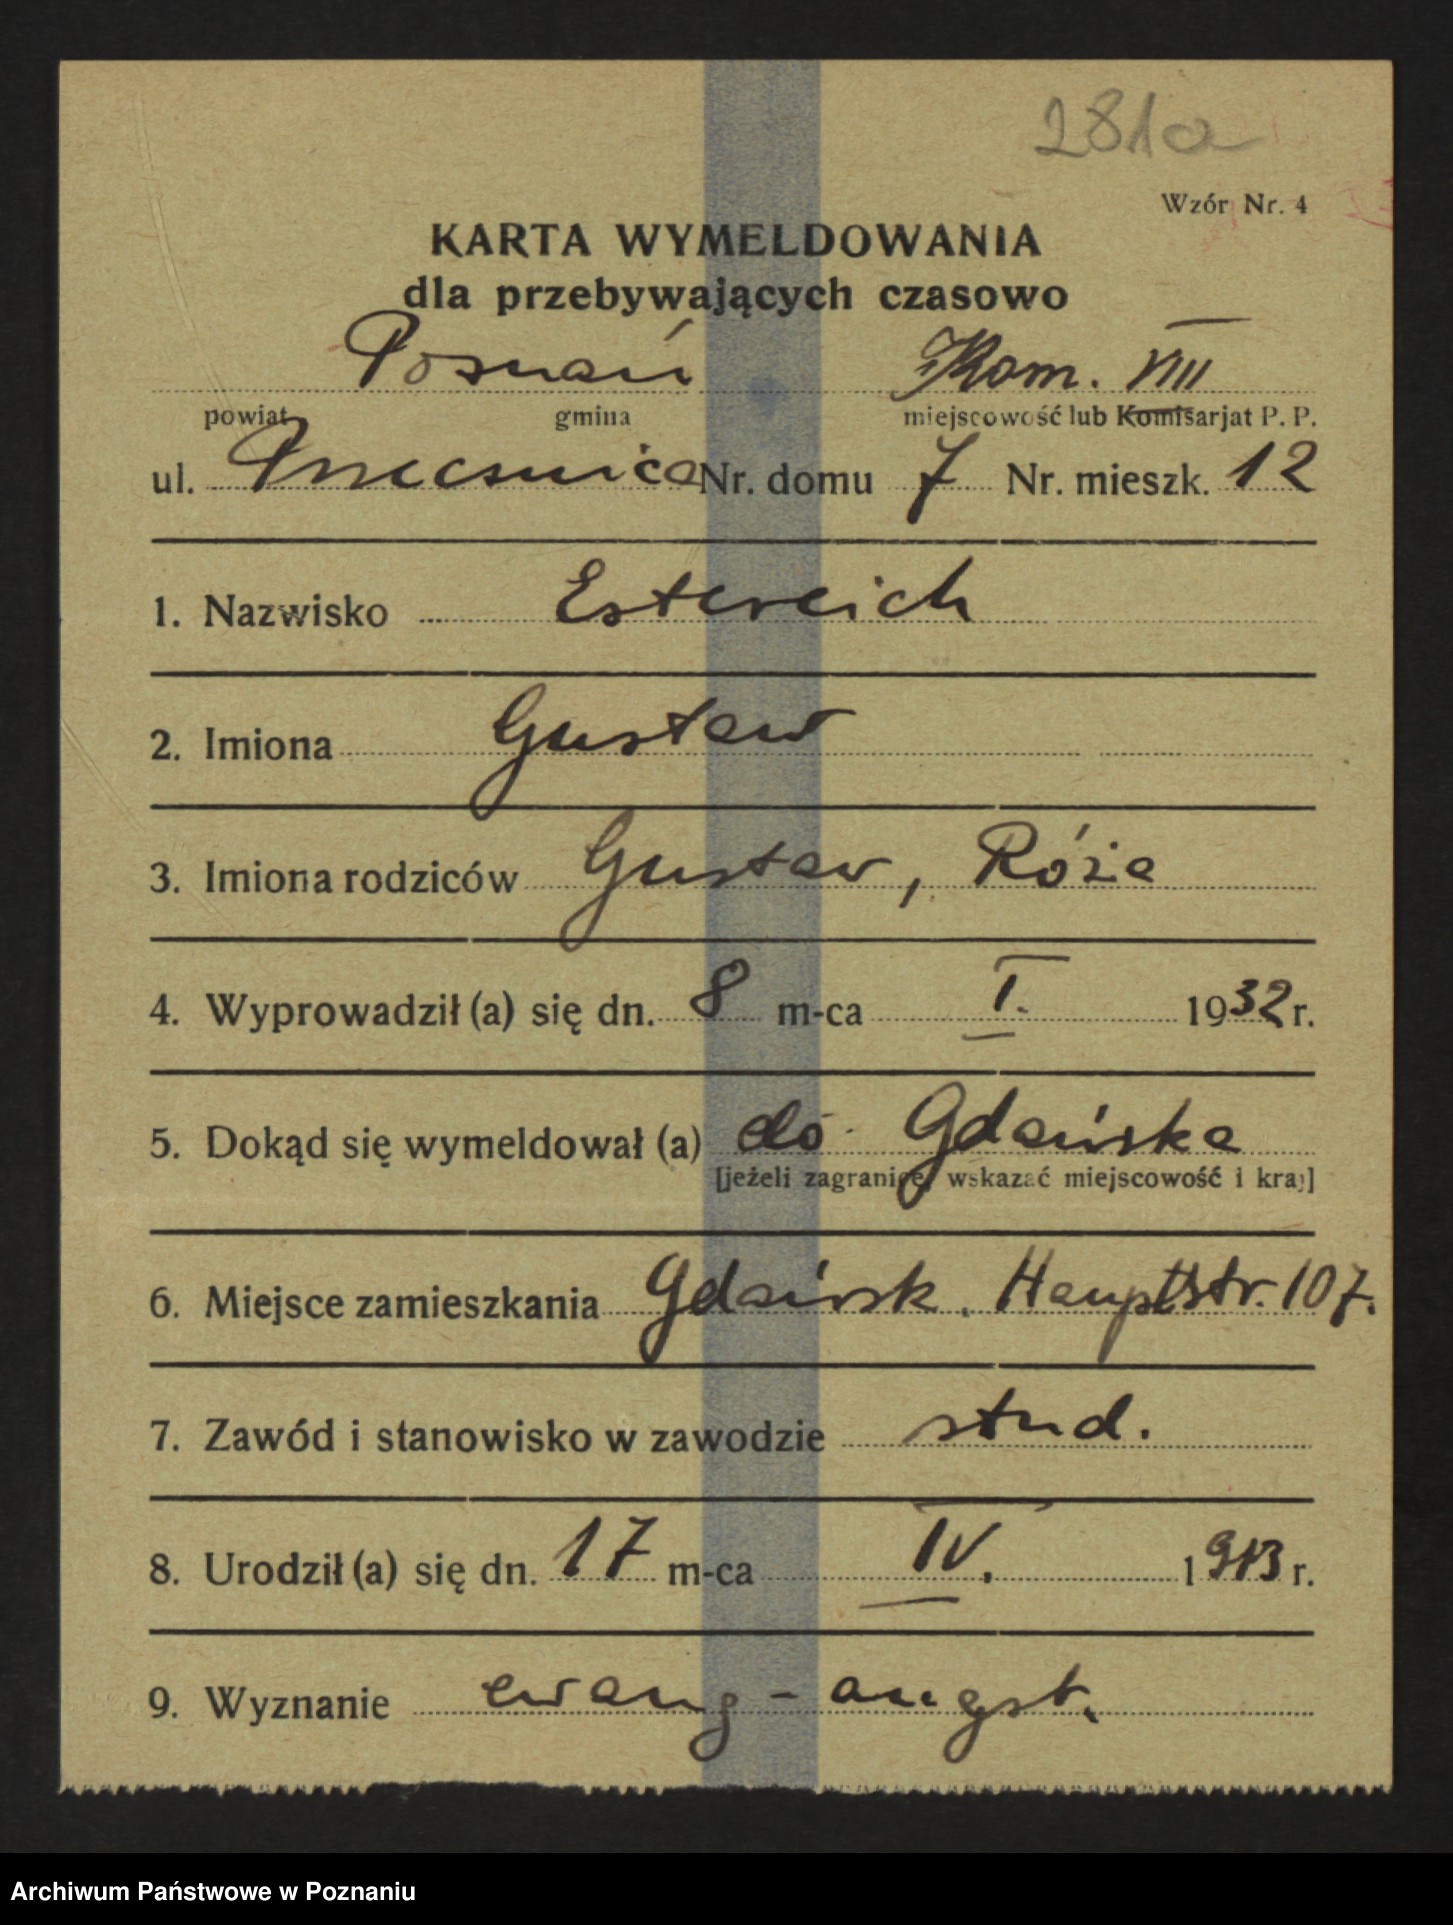 281a
Wzór Nr. 4
KARTA WYMELDOWANIA
dla przebywających czasowo
Poznań Kom. VIII
powiat gmina miejscowość lub Komisarjat P. P.
ul. Przecznica Nr. domu 7 Nr. mieszk. 12
1. Nazwisko Estereich
2. Imiona Gustaw
3. Imiona rodziców Gustaw, Róża
4. Wyprowadził (a) się dn. 8 m-ca I. 1932 r.
5. Dokąd się wymeldował (a) do Gdańska
[jeżeli zagranicę, wskazać miejscowość i kraj]
6. Miejsce zamieszkania Gdańsk, Hauptstr. 107.
7. Zawód i stanowisko w zawodzie stud.
8. Urodził (a) się dn. 17 m-ca IV. 1913 r.
9. Wyznanie ewang - augsb.
Archiwum Państwowe w Poznaniu